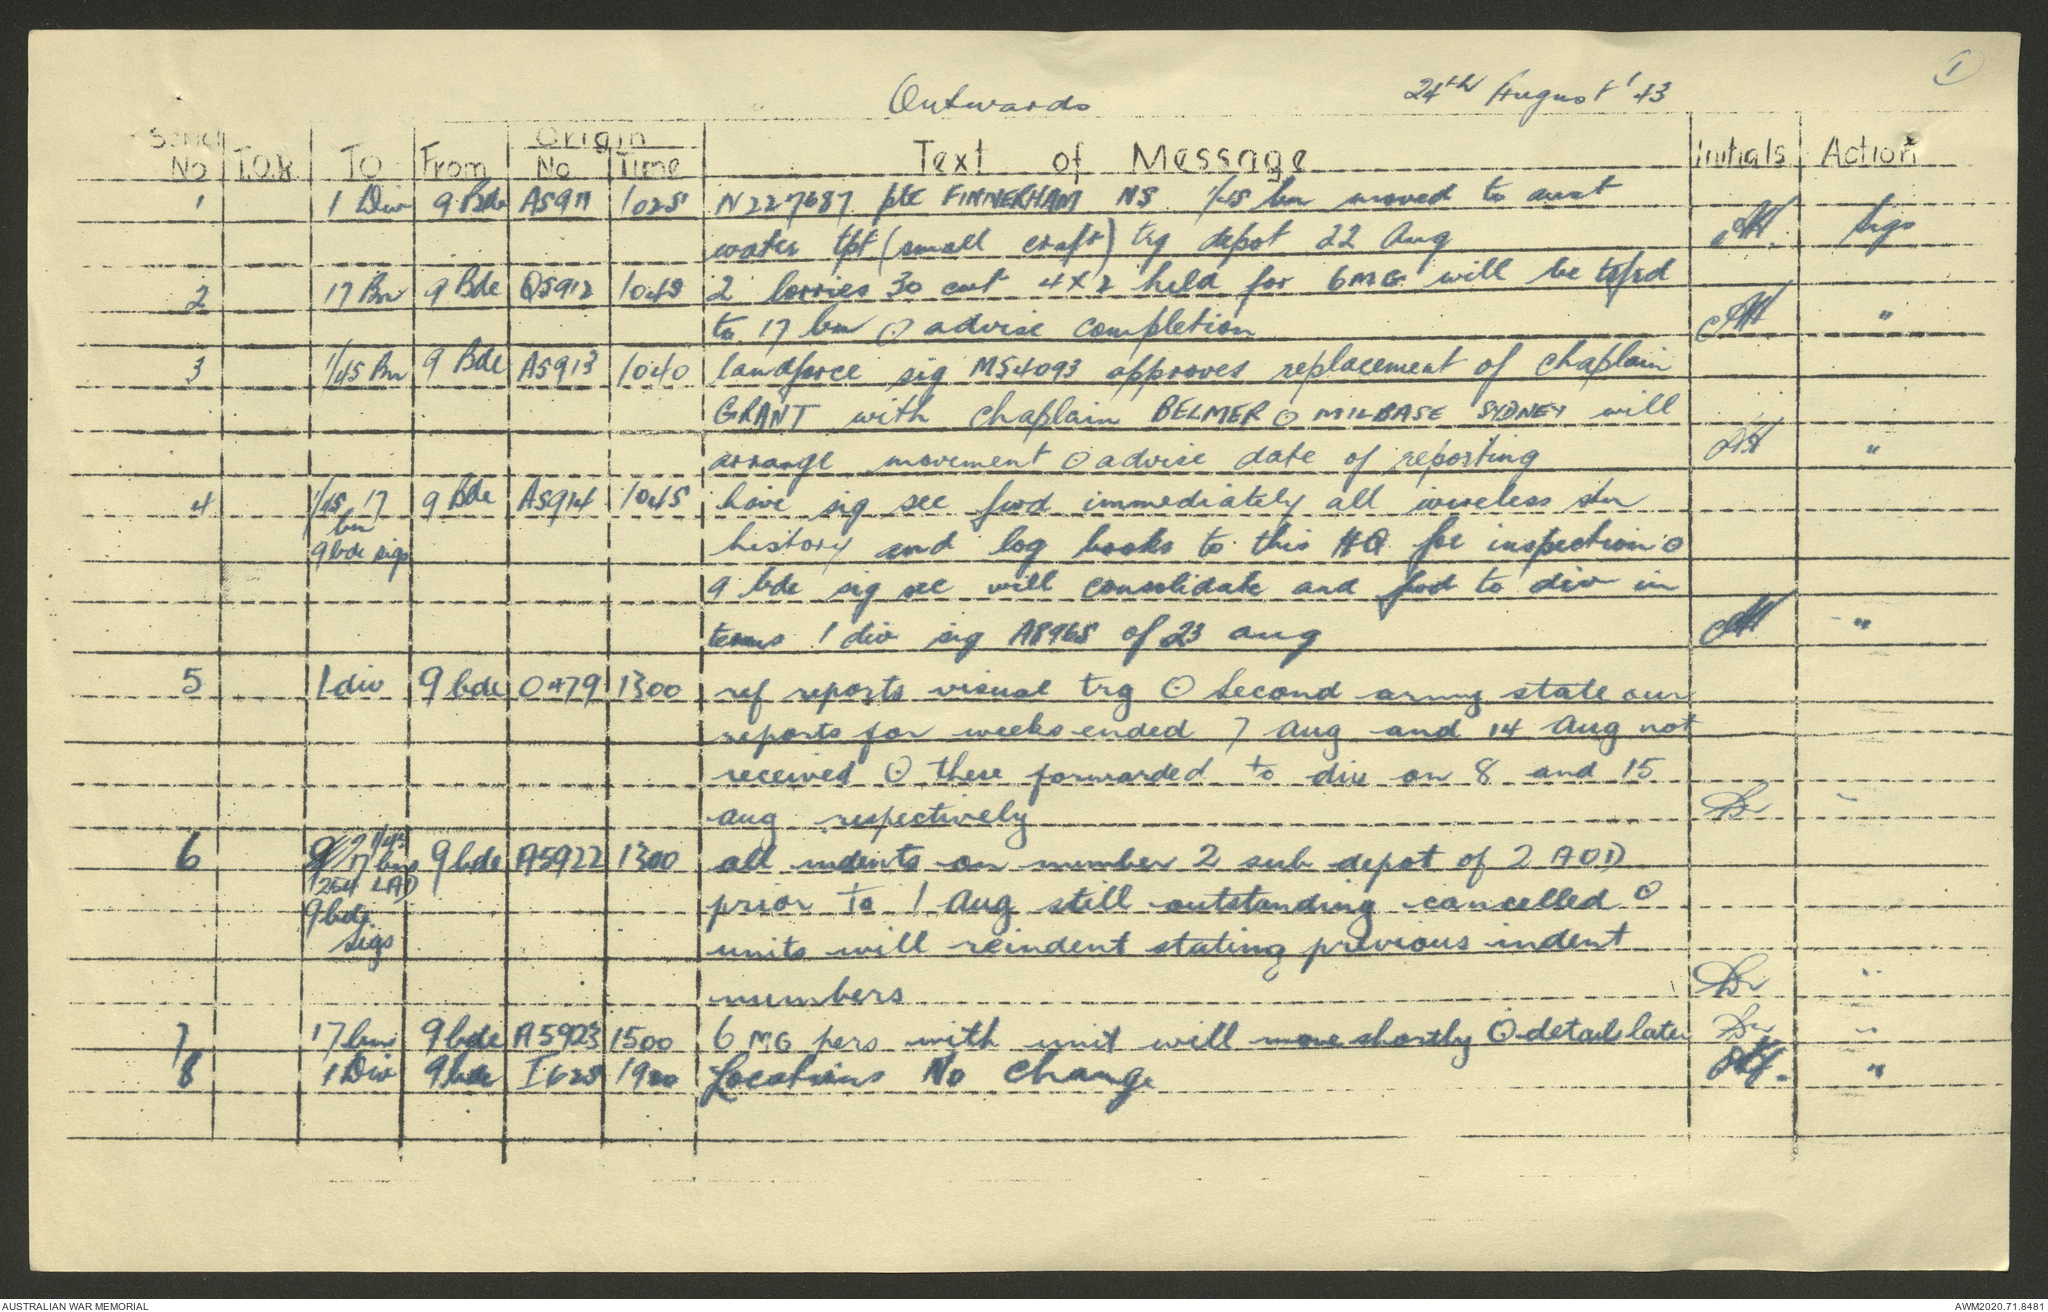 1
Outwards 24th August '43
Serial No T.O.R. TO From Origin No Time Text of Message Initials Action
1 1 Div 9 Bde A5911 1025 N227687 pte FINNERHAM NS 1/45 bn moved to aust
water tpt (small craft) trg depot 22 Aug Sigs
2 17 Bn 9 Bde Q5912 1045 2 lorries 30 cwt 4x2 held for 6MG will be tsfrd
to 17 bn ⊙ advise completion "
3 1/45 Bn 9 Bde A5913 1040 landforce sig MS4093 approves replacement of chaplain
GRANT with chaplain BELMER ⊙ MILBASE SYDNEY will
arrange movement ⊙ advise date of reporting "
4 1/45 17 9 Bde A5914 1045 have sig sec fwd immediately all wireless stn
bn
9 bde sigs history and log books to this HQ for inspection ⊙
9 bde sig sec will consolidate and fwd to div in
terms 1 div sig A8968 of 23 aug "
5 1 div 9 bde O479 1300 ref reports visual trg ⊙ Second army state our
reports for weeks ended 7 Aug and 14 Aug not
received ⊙ these forwarded to div on 8 and 15
aug respectively "
6 1/45 17 bns 9 bde A5922 1300 all indents on number 2 sub depot of 2 AOD
264 LAD
9 bde prior to 1 Aug still outstanding cancelled ⊙
sigs units will reindent stating previous indent
numbers "
7 17 bn 9 bde A5923 1500 6 MG pers with unit will move shortly ⊙ details later "
8 1 Div 9 bde I625 1900 Locations No Change "
AUSTRALIAN WAR MEMORIAL AWM2020.71.8481